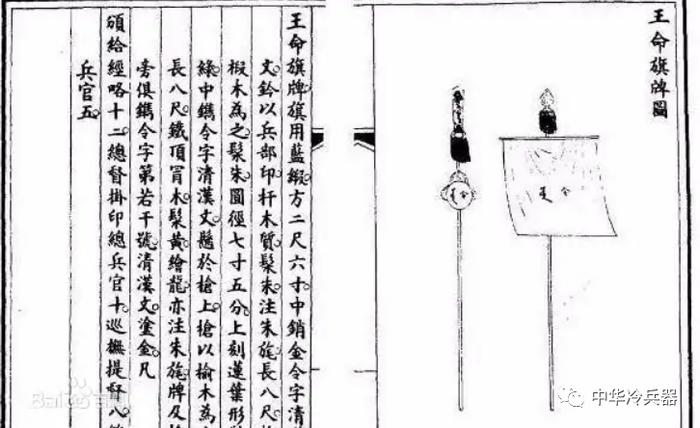 王命旗牌圖
令
令
王命旗牌旗用藍緞方二尺六寸中銷金令字清
文鈐以兵部印杆木質髹朱注朱旄長八尺
椴木為之髹朱圓徑七寸五分上刻蓮葉形
綠中鐫令字清漢文懸於槍上槍以榆木為
長八尺鐵頂冒木髹黃繪龍亦注朱旄牌及
旁俱鐫令字第若干號清漢文塗金凡
頒給經略十二總督掛印總兵官十巡撫提督八
兵官五
Bai
中华冷兵器